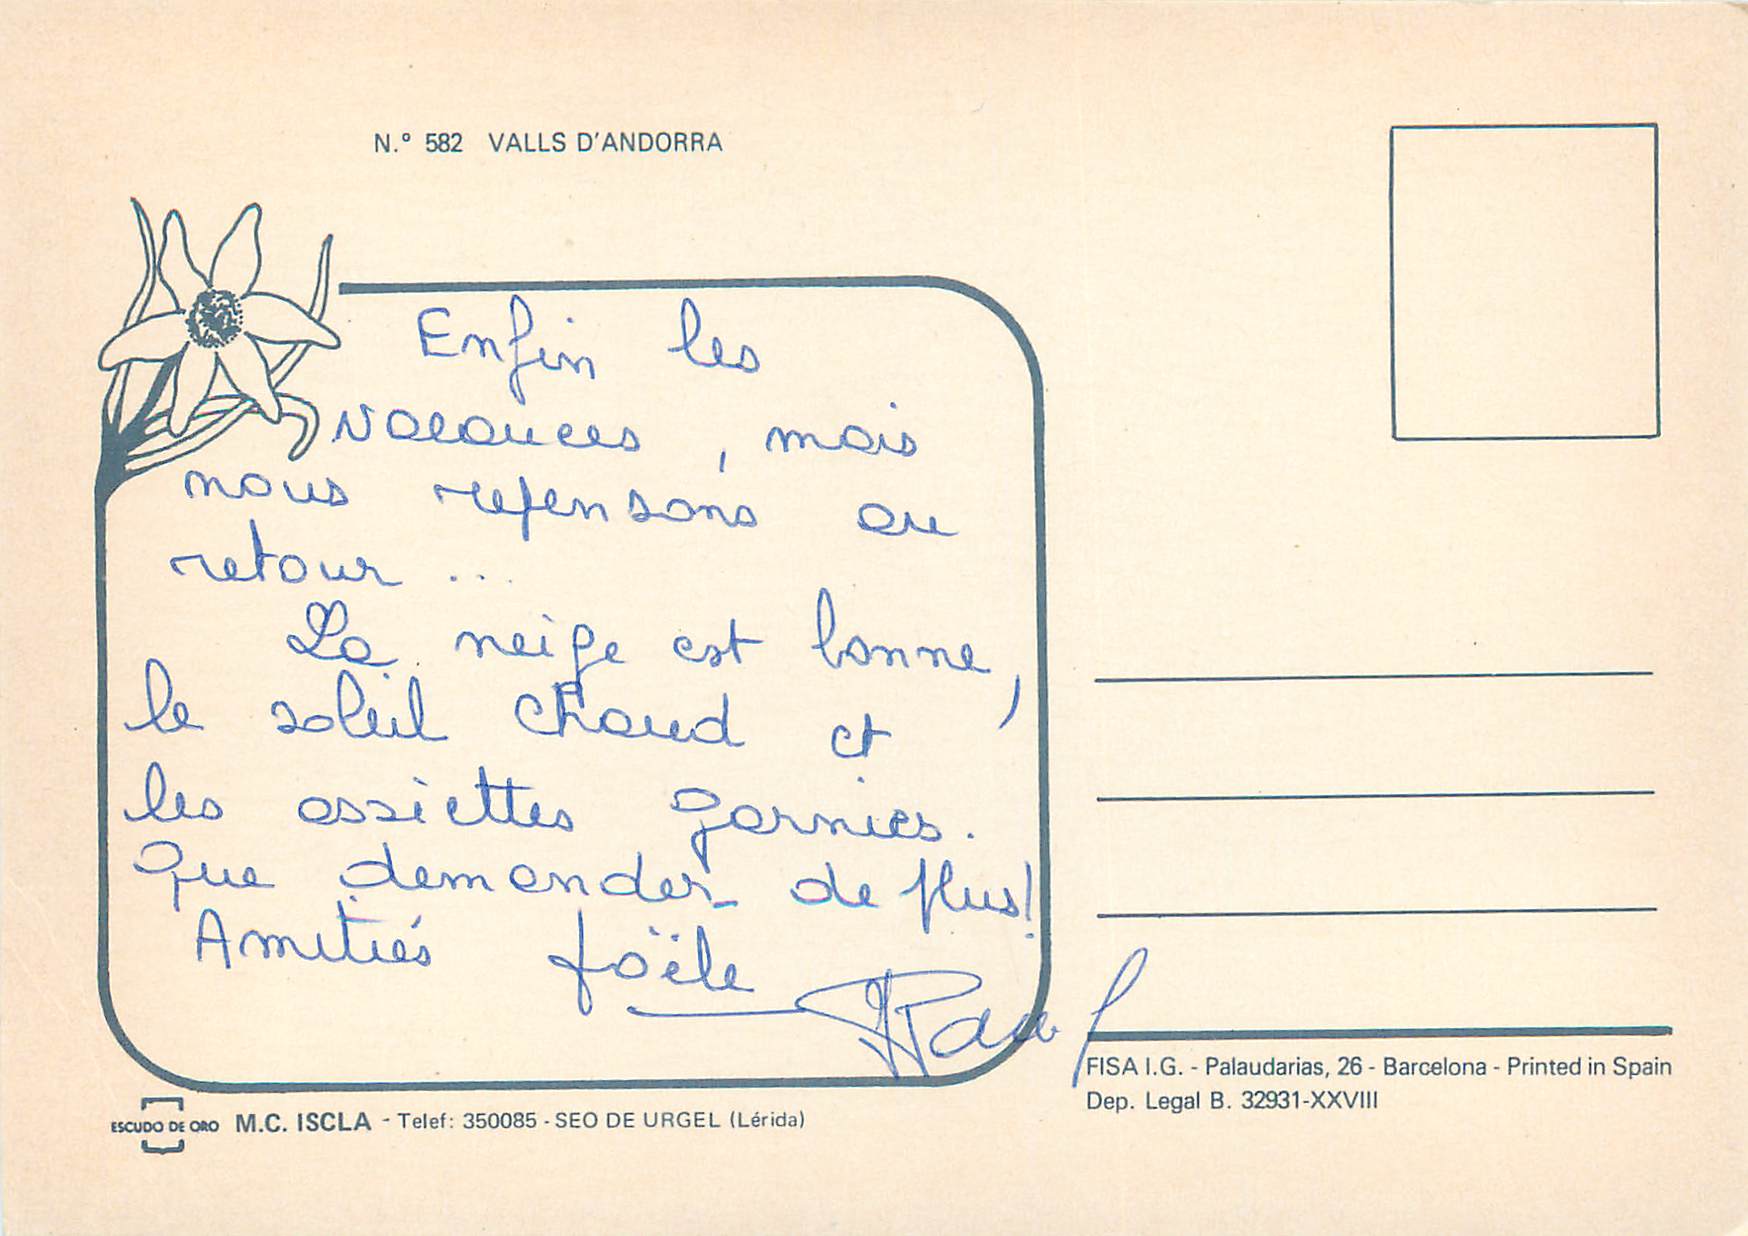 N.º 582 VALLS D'ANDORRA
Enfin les
vacances, mais
nous repensons au
retour ...
La neige est bonne,
le soleil chaud et
les assiettes garnies.
Que demander de plus!
Amitiés Joële
Paul
ESCUDO DE ORO M.C. ISCLA - Telef: 350085 - SEO DE URGEL (Lérida)
FISA I.G. - Palaudarias, 26 - Barcelona - Printed in Spain
Dep. Legal B. 32931-XXVIII